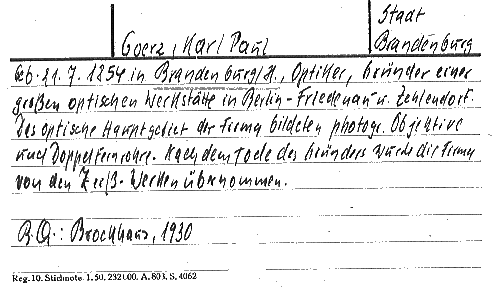 Stadt
Goerz, Karl Paul Brandenburg
Geb. 21. 7. 1854 in Brandenburg/H., Optiker, Gründer einer
großen optischen Werkstätte in Berlin-Friedenau u. Zehlendorf.
Das optische Hauptgebiet der Firma bildeten photogr. Objektive
und Doppelfernrohre. Nach dem Tode des Gründers wurde die Firma
von den Zeiß-Werken übernommen.
B.Q.: Brockhaus, 1930
Reg. 10. Stichnote. 1. 50. 232000. A. 803. S. 4062